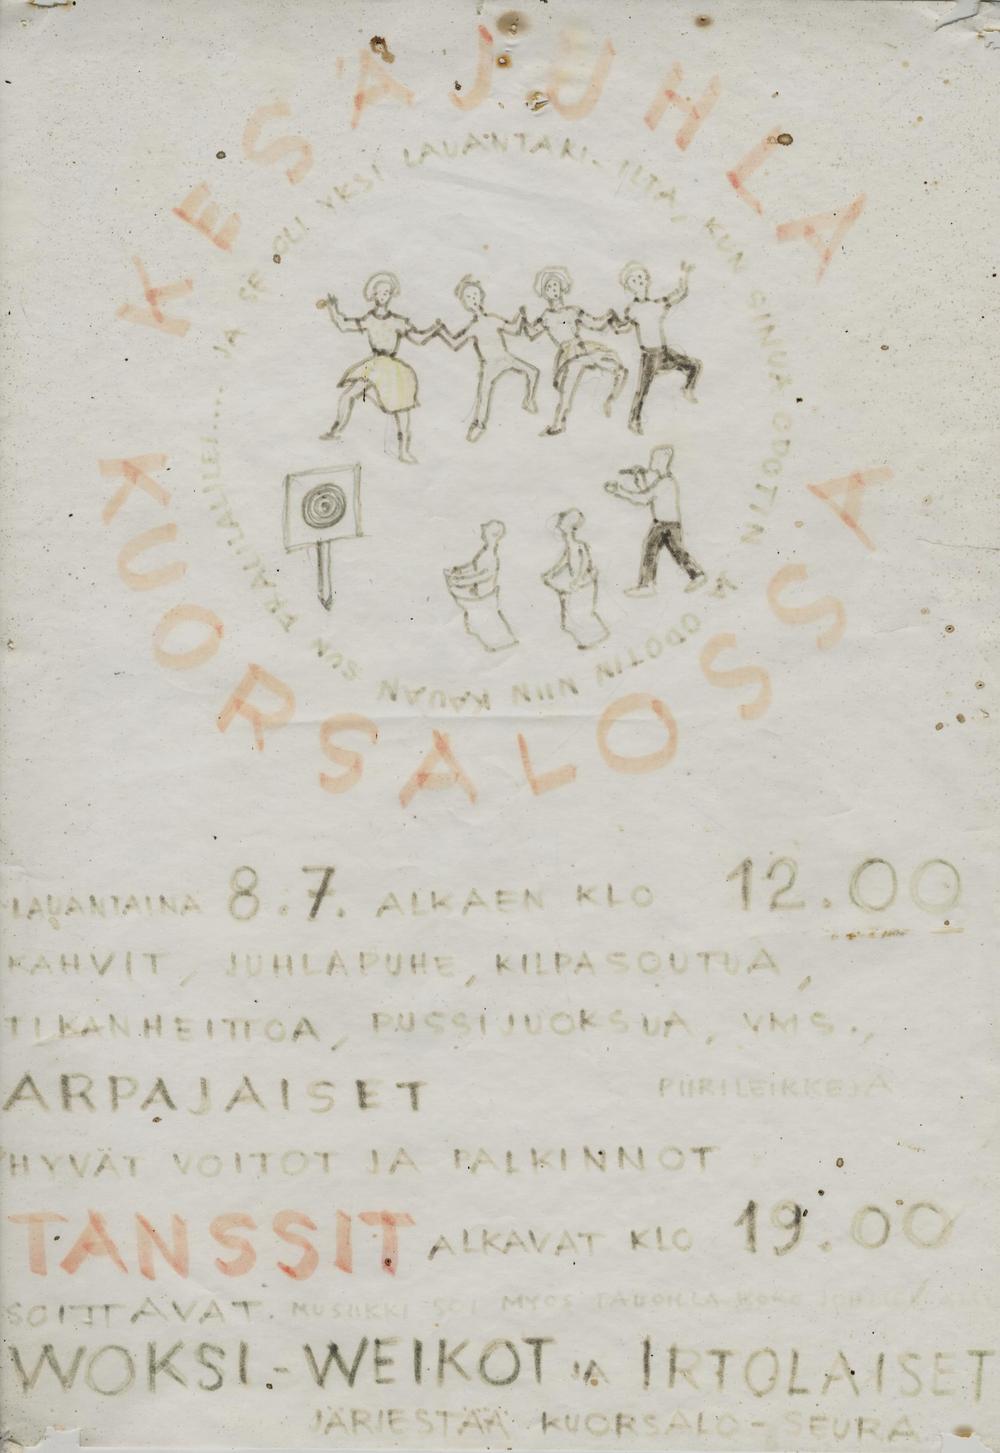 KESÄJUHLA
KUORSALOSSA
JA SE OLI YKSI LAUANTAKI-ILTA, KUN SINUA ODOTIN
JA ODOTIN NIIN KAUAN SUN TRALLALLALLEI....
LAUANTAINA 8.7. ALKAEN KLO 12.00
KAHVIT, JUHLAPUHE, KILPASOUTUA,
TIKANHEITTOA, PUSSIJUOKSUA, YMS.,
ARPAJAISET PIIRILEIKKEJÄ
HYVÄT VOITOT JA PALKINNOT
TANSSIT ALKAVAT KLO 19.00
SOITTAVAT. MUSIIKKI SOI MYÖS
WOKSI-WEIKOT JA IRTOLAISET
JÄRJESTÄÄ KUORSALO-SEURA